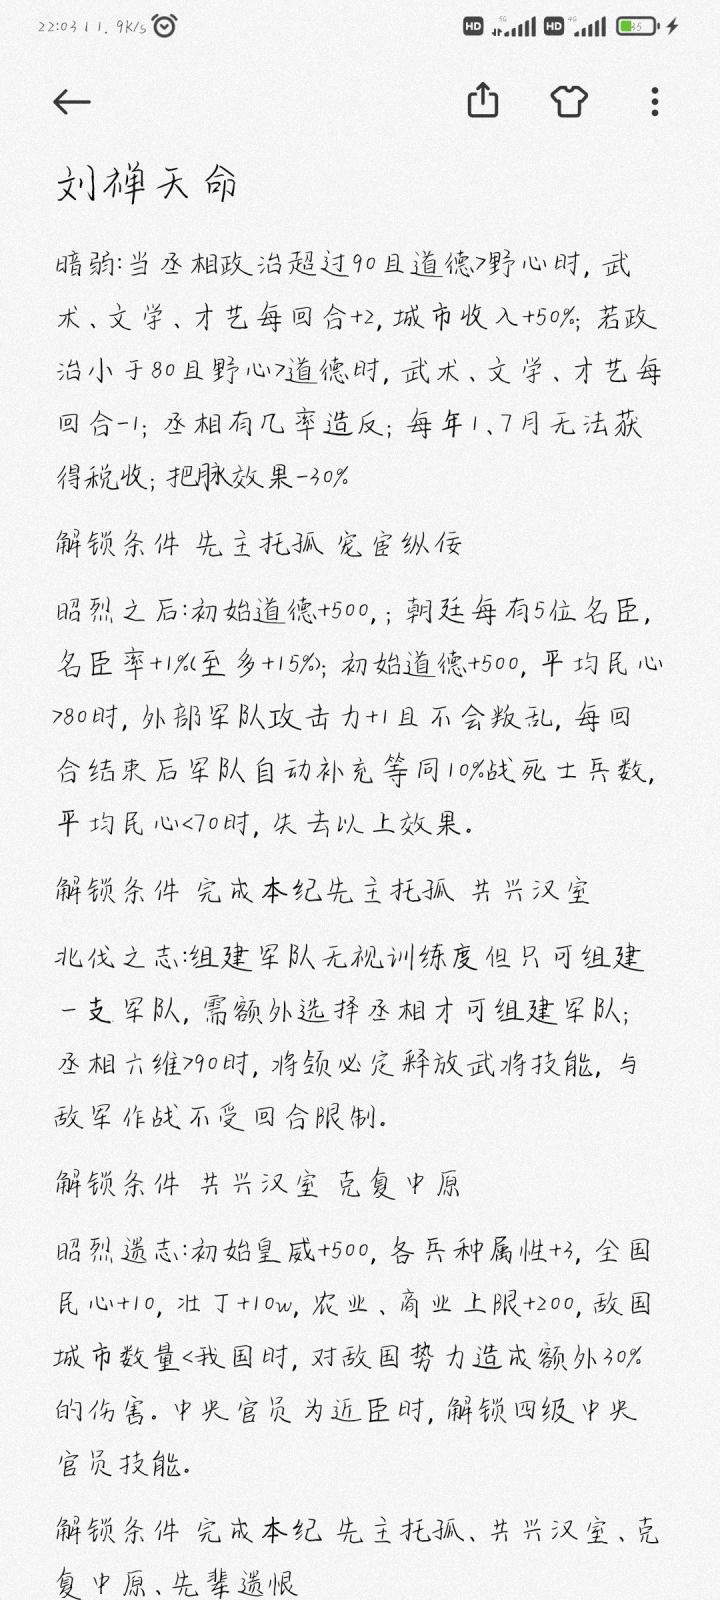 22:03 11.9K/s
HD 5G HD 4G 35
刘禅天命
暗弱:当丞相政治超过90且道德>野心时, 武
术、文学、才艺每回合+2, 城市收入+50%; 若政
治小于80且野心>道德时, 武术、文学、才艺每
回合-1; 丞相有几率造反; 每年1、7月无法获
得税收; 把脉效果-30%
解锁条件 先主托孤 宠宦纵佞
昭烈之后:初始道德+500,; 朝廷每有5位名臣,
名臣率+1%(至多+15%); 初始道德+500, 平均民心
>80时, 外部军队攻击力+1且不会叛乱, 每回
合结束后军队自动补充等同10%战死士兵数,
平均民心<70时, 失去以上效果。
解锁条件 完成本纪先主托孤 共兴汉室
北伐之志:组建军队无视训练度但只可组建
一支军队, 需额外选择丞相才可组建军队;
丞相六维>90时, 将领必定释放武将技能, 与
敌军作战不受回合限制。
解锁条件 共兴汉室 克复中原
昭烈遗志:初始皇威+500, 各兵种属性+3, 全国
民心+10, 壮丁+10w, 农业、商业上限+200, 敌国
城市数量<我国时, 对敌国势力造成额外30%
的伤害。中央官员为近臣时, 解锁四级中央
官员技能。
解锁条件 完成本纪 先主托孤、共兴汉室、克
复中原、先辈遗恨